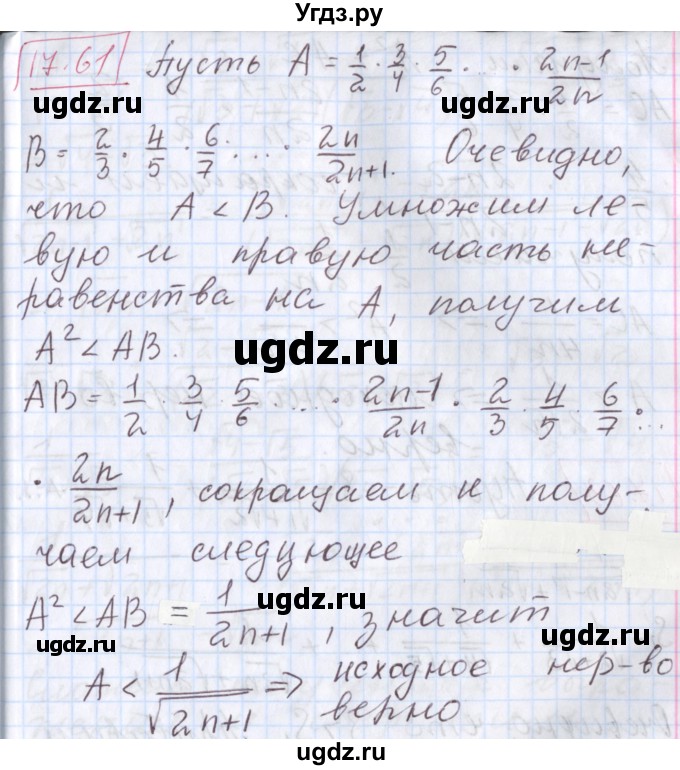 Угдз.ру
17.61 Пусть A = 1/2 · 3/4 · 5/6 · ... · 2n-1/2n
ugdz.ru ugdz.ru
B = 2/3 · 4/5 · 6/7 · ... · 2n/2n+1. Очевидно,
что A < B. Умножим ле-
вую и правую часть не-
равенства на A, получим
A² < AB.
ugdz.ru
AB = 1/2 · 3/4 · 5/6 · ... · 2n-1/2n · 2/3 · 4/5 · 6/7 · ...
· 2n/2n+1, сокращаем и полу-
чаем следующее
A² < AB = 1/2n+1, значит
ugdz.ru ugdz.ru
A < 1/√2n+1 => исходное нер-во
верно
ugdz.ru